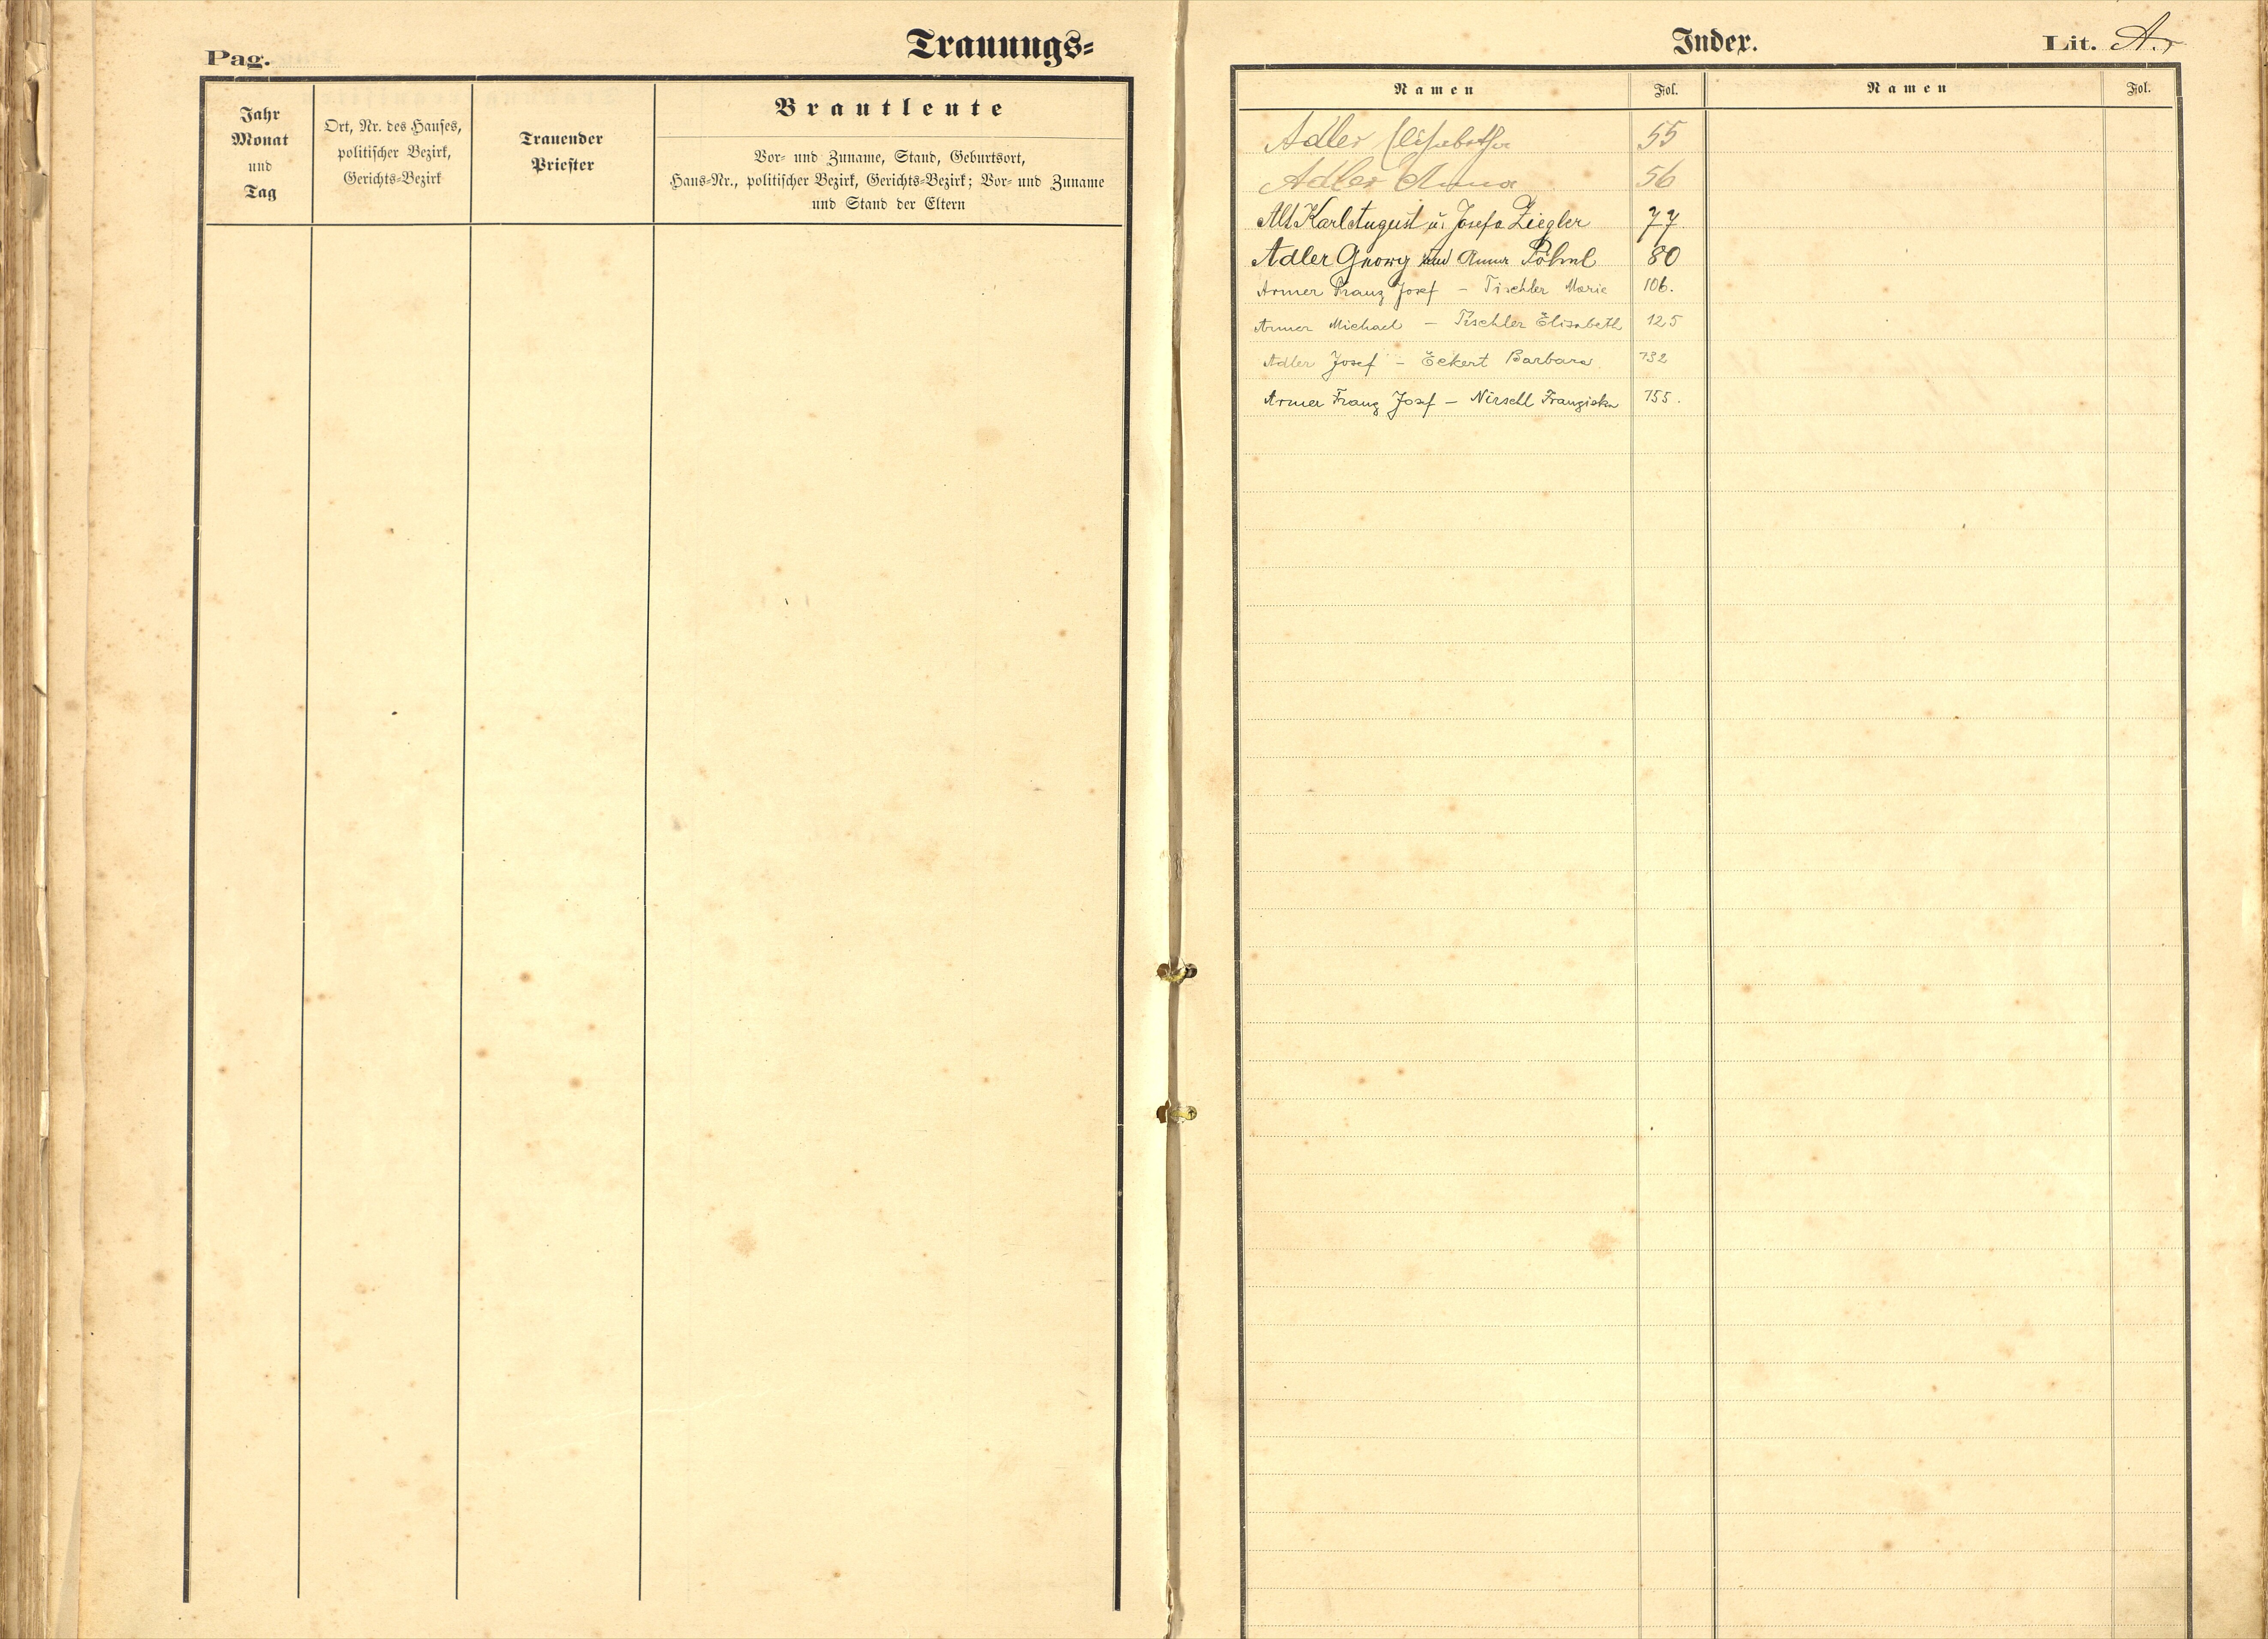 Pag.
Trauungs=
Jahr
Monat
und
Tag
Ort, Nr. des Hauses,
politischer Bezirk,
Gerichts=Bezirk
Trauender
Priester
Brautleute
Vor= und Zuname, Stand, Geburtsort,
Haus=Nr., politischer Bezirk, Gerichts=Bezirk; Vor= und Zuname
und Stand der Eltern
Index.
Lit. A.
Namen Fol. Namen Fol.
Adler Elisabetha 55
Adler Anna 56
Alt Karl August u. Josefa Ziegler 77.
Adler Georg und Anna Pöhnl 80
Armer Franz Josef – Tischler Marie 106.
Armer Michael – Tischler Elisabeth 125
Adler Josef – Eckert Barbara 132
Armer Franz Josef – Nirschl Franziska 155.